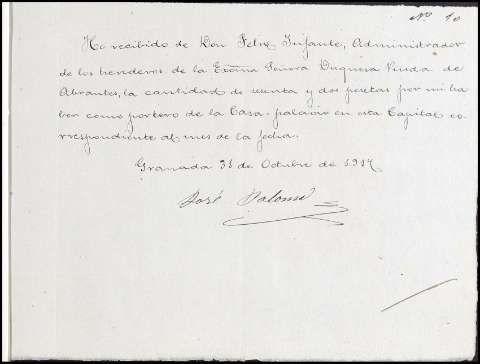 Nº 10
He recibido de Don Pedro Infante, Administrador
de los herederos de la Excma Señora Duquesa Viuda de
Abrantes, la cantidad de setenta y dos pesetas por mi ha
ber como portero de la Casa-palacio en esta Capital co-
rrespondiente al mes de la fecha.
Granada 31 de Octubre de 1917
José Palomo